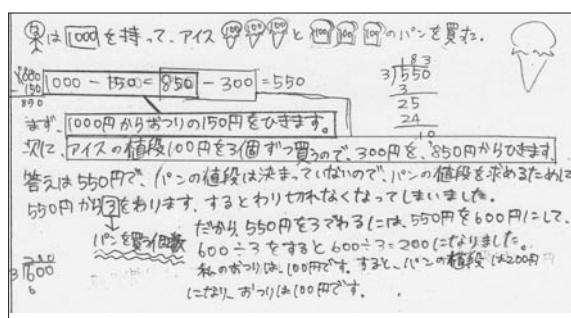 は 1000 を持って、アイス 100 100 100 と 100 100 100 のパンを買った。
1000 - 150 = 850 - 300 = 550
1000
150
850
183
3)550
3
25
24
10
まず、1000円からおつりの150円をひきます。
次に、アイスの値段100円を3個ずつ買うので、300円を、850円からひきます。
答えは550円で、パンの値段は決まっていないので、パンの値段を求めるために
550円から3をわります。するとわり切れなくなってしまいました。
パンを買う個数
だから、550円を3でわるには、550円を600円にして、
600÷3をすると600÷3=200になりました。
私のおつりは、100円です。すると、パンの値段は200円
になり、おつりは100円です。
200
3)600
6